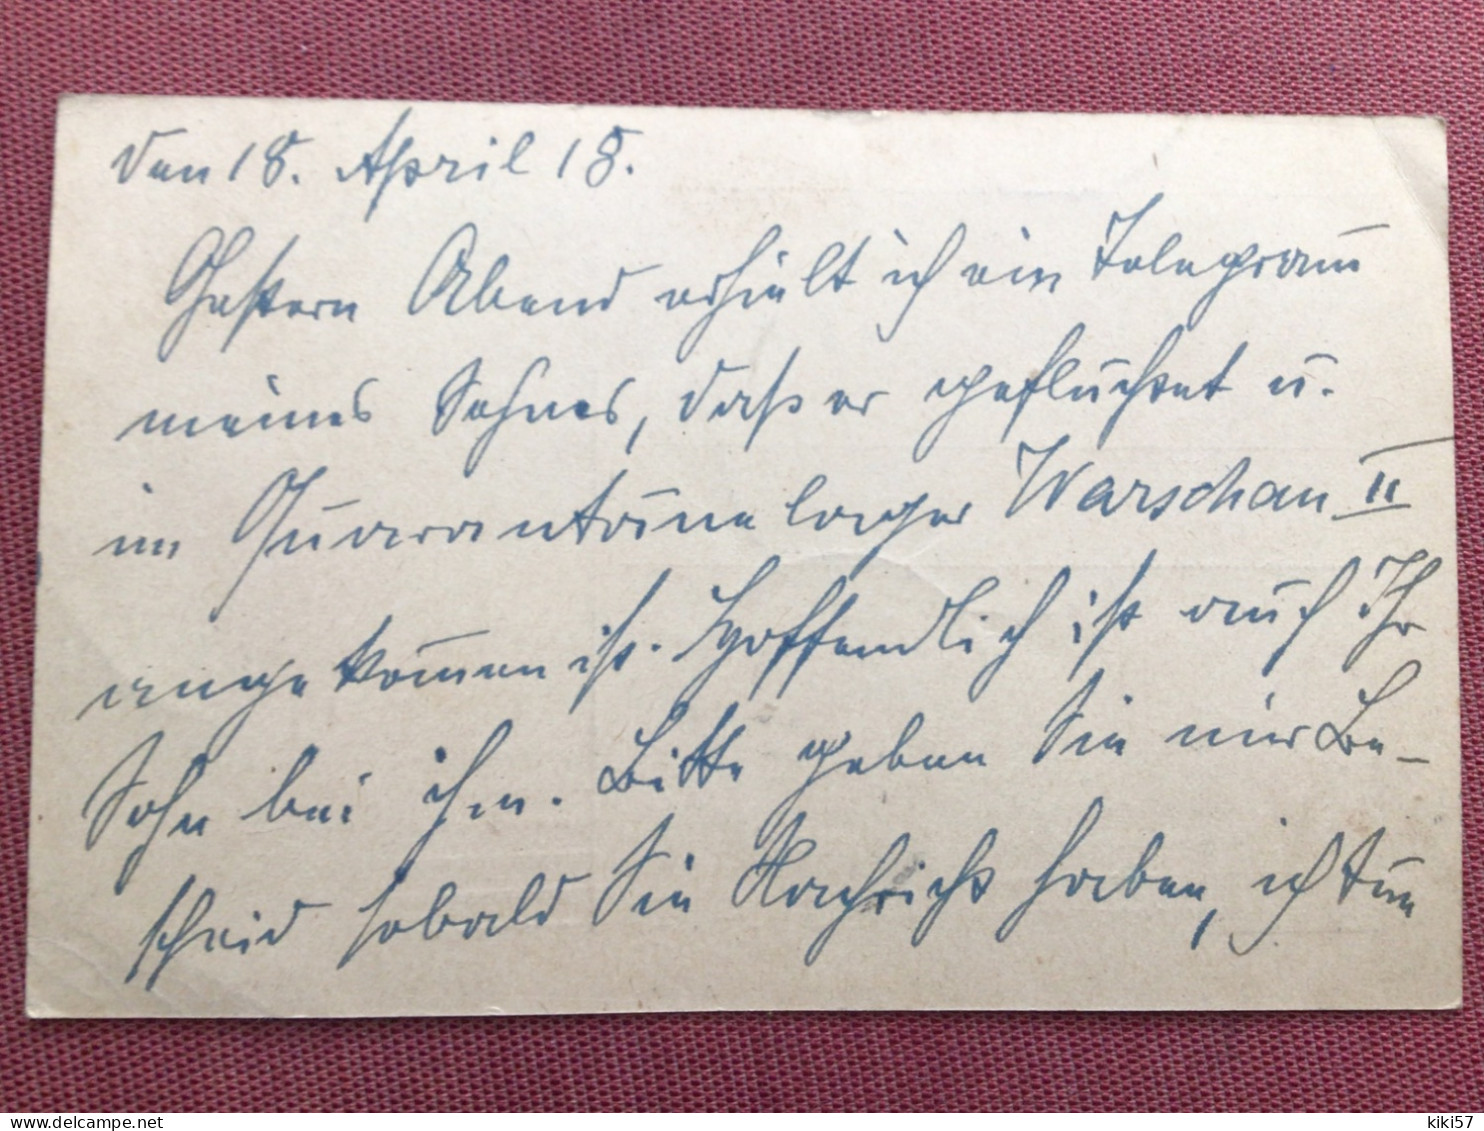 den 18. April 18.
Gestern Abend erhielt ich ein Telegram̅
meines Sohnes, daß er geflüchtet u.
im Quarantänelager Warschau II
angekom̅en ist. Hoffendlich ist auch Ihr
Sohn bei ihm. Bitte geben Sie mir Be-
scheid sobald Sie Nachricht haben, ich tue
kiki57